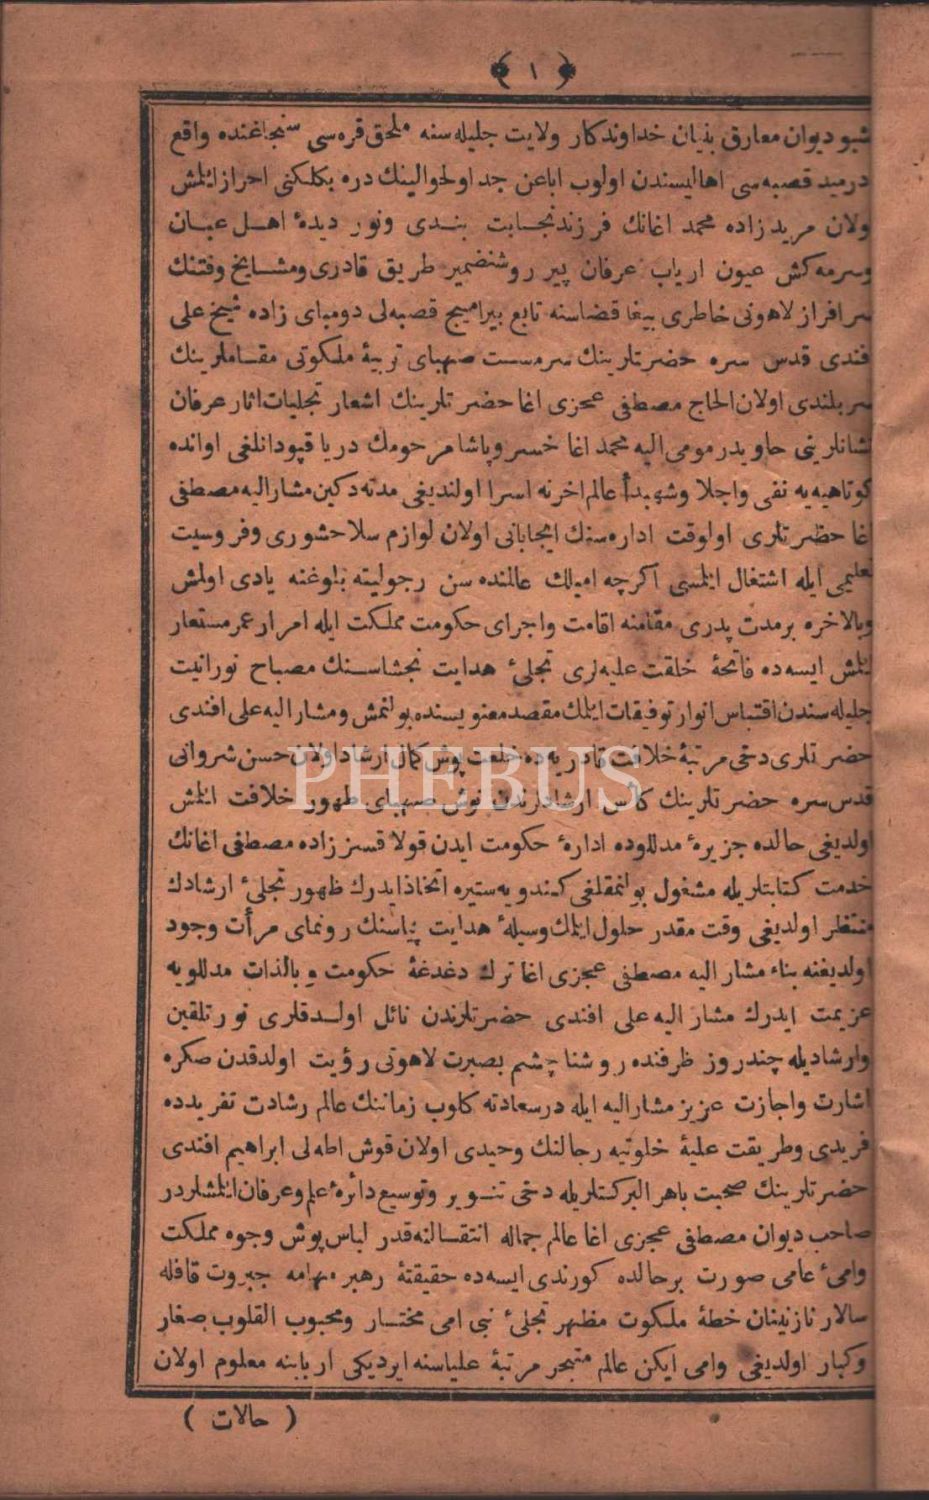 ﴿ ١ ﴾
شبو ديوان معارق بنيان خداوندكار ولايت جليله سنه ملحق قره سى سنجاغنده واقع
درميد قصبه سى اهاليسندن اولوب اباعن جد اولحوالينك دره بكلكنى احراز ايلمش
ولان مريد زاده محمد اغانك فرزند نجابت بندى ونور ديدۀ اهل عيان
وسرمه كش عيون ارباب عرفان پير روشنضمير طريق قادرى ومشايخ وقتنك
سرافراز لاهوتى خاطرى بيغا قضاسنه تابع بيراميج قصبه لى دومباى زاده شيخ على
فندى قدس سره حضرتلرينك سرمست صهباى تربيۀ ملكوتى مقاملرينك
سربلندى اولان الحاج مصطفى عجزى اغا حضرتلرينك اشعار تجليات اثار عرفان
شانلرينى حاويدر مومى اليه محمد اغا خسرو پاشا مرحومك دريا قپودانلغى اوانده
كوتاهيه يه نفى واجلا وشهيداً عالم اخرته اسرا اولنديغى مدته دكين مشار اليه مصطفى
اغا حضرتلرى اولوقت اداره سنك ايجاباتى اولان لوازم سلاحشورى وفروسيت
تعليمى ايله اشتغال ايلمسى اكرچه اميلك عالمنده سن رجوليته بلوغنه يادى اولمش
وبالاخره برمدت پدرى مقامنه اقامت واجراى حكومت مملكت ايله امرار عمر مستعار
ايلمش ايسه ده فاتحۀ خلقت عليه لرى تجلئ هدايت نجشاسنك مصباح نورانيت
جليله سندن اقتباس انوار توفيقات ايلمك مقصد معنويسنده بولنمش ومشار اليه على افندى
حضرتلرى دخى مرتبۀ خلافت قادريه ده خلعت پوش كمال ارشاد اولان حسن شروانى
قدس سره حضرتلرينك كاس ارشادلرندن نوش صهباى طهور خلافت ايلمش
اولديغى حالده جزيرۀ مدللوده ادارۀ حكومت ايدن قولاقسز زاده مصطفى اغانك
خدمت كتابتلريله مشغول بولنمقلغى كندويه ستيره اتخاذ ايدرك ظهور تجلئ ارشادك
منتظر اولديغى وقت مقدر حلول ايلمك وسيلۀ هدايت پناسنك رونماى مرأت وجود
اولديغنه بناء مشار اليه مصطفى عجزى اغا ترك دغدغۀ حكومت و بالذات مدللويه
عزيمت ايدرك مشار اليه على افندى حضرتلرندن نائل اولدقلرى نور تلقين
وارشاديله چند روز ظرفنده روشنا چشم بصيرت لاهوتى رؤيت اولدقدن صكره
اشارت واجازت عزيز مشار اليه ايله درسعادته كلوب زماننك عالم رشادت تفريدده
فريدى وطريقت عليۀ خلوتيه رجالنك وحيدى اولان قوش اطه لى ابراهيم افندى
حضرتلرينك صحبت باهر البركتلريله دخى تنوير وتوسيع دائرۀ علم وعرفان ايلمشلردر
صاحب ديوان مصطفى عجزى اغا عالم جماله انتقالنه قدر لباس پوش وجوه مملكت
وامئ عامى صورت برحالده كورندى ايسه ده حقيقتۀ رهبر مهامه جبروت قافله
سالار نازنينان خطۀ ملكوت مظهر تجلئ نبى امى مختار ومحبوب القلوب صغار
وكبار اولديغى وامى ايكن عالم متبحر مرتبۀ علياسنه ايرديكى اربابنه معلوم اولان
( حالات )
PHEBUS